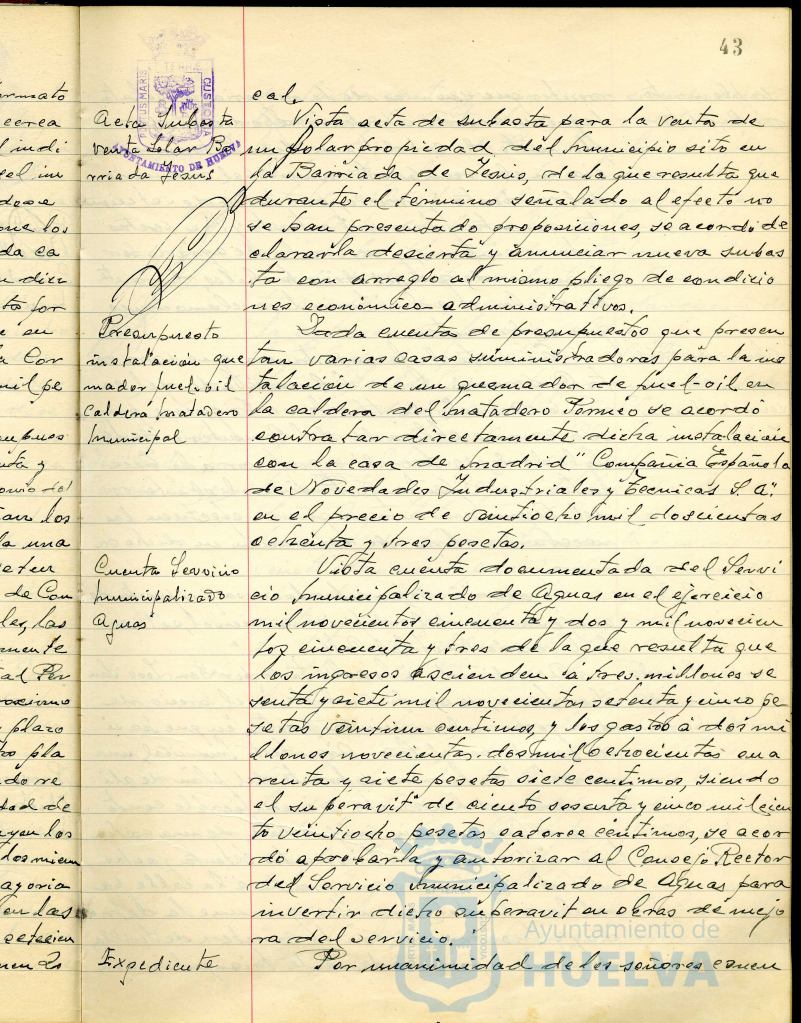 43
cal.
Acta Subasta
venta solar Ba-
rriada Jesus
Vista acta de subasta para la venta de
un Solar propiedad del Municipio sito en
la Barriada de Jesús, de la que resulta que
durante el término señalado al efecto no
se han presentado proposiciones, se acordó de
clararla desierta y anunciar nueva subas
ta con arreglo al mismo pliego de condicio
nes económico administrativos.
Presupuesto
instalación que
mador fuel-oil
caldera Matadero
Municipal
Dada cuenta de presupuestos que presen
tan varias casas suministradoras para la ins
talación de un quemador de fuel-oil en
la caldera del Matadero Público se acordó
contratar directamente dicha instalación
con la casa de Madrid "Compañia Española
de Novedades Industriales y Tecnicas S. A."
en el precio de veintiocho mil doscientas
ochenta y tres pesetas.
Cuenta Servicio
Municipalizado
Aguas
Vista cuenta documentada del Servi
cio Municipalizado de Aguas en el ejercicio
mil novecientos cincuenta y dos y mil novecien
tos cincuenta y tres de la que resulta que
los ingresos ascienden á tres millones se
senta y siete mil novecientas setenta y cinco pe
setas veintiun centimos, y los gastos á dos mi
llones novecientas dos mil ochocientas cua
renta y siete pesetas siete centimos, siendo
el superavit de ciento sesenta y cinco mil cien
to veintiocho pesetas catorce céntimos, se acor
dó aprobarla y autorizar al Consejo Rector
del Servicio Municipalizado de Aguas para
invertir dicho superavit en obras de mejo
ra del servicio.
Expediente
Por unanimidad de los señores concu
AYUNTAMIENTO DE HUELVA
Ayuntamiento de
HUELVA